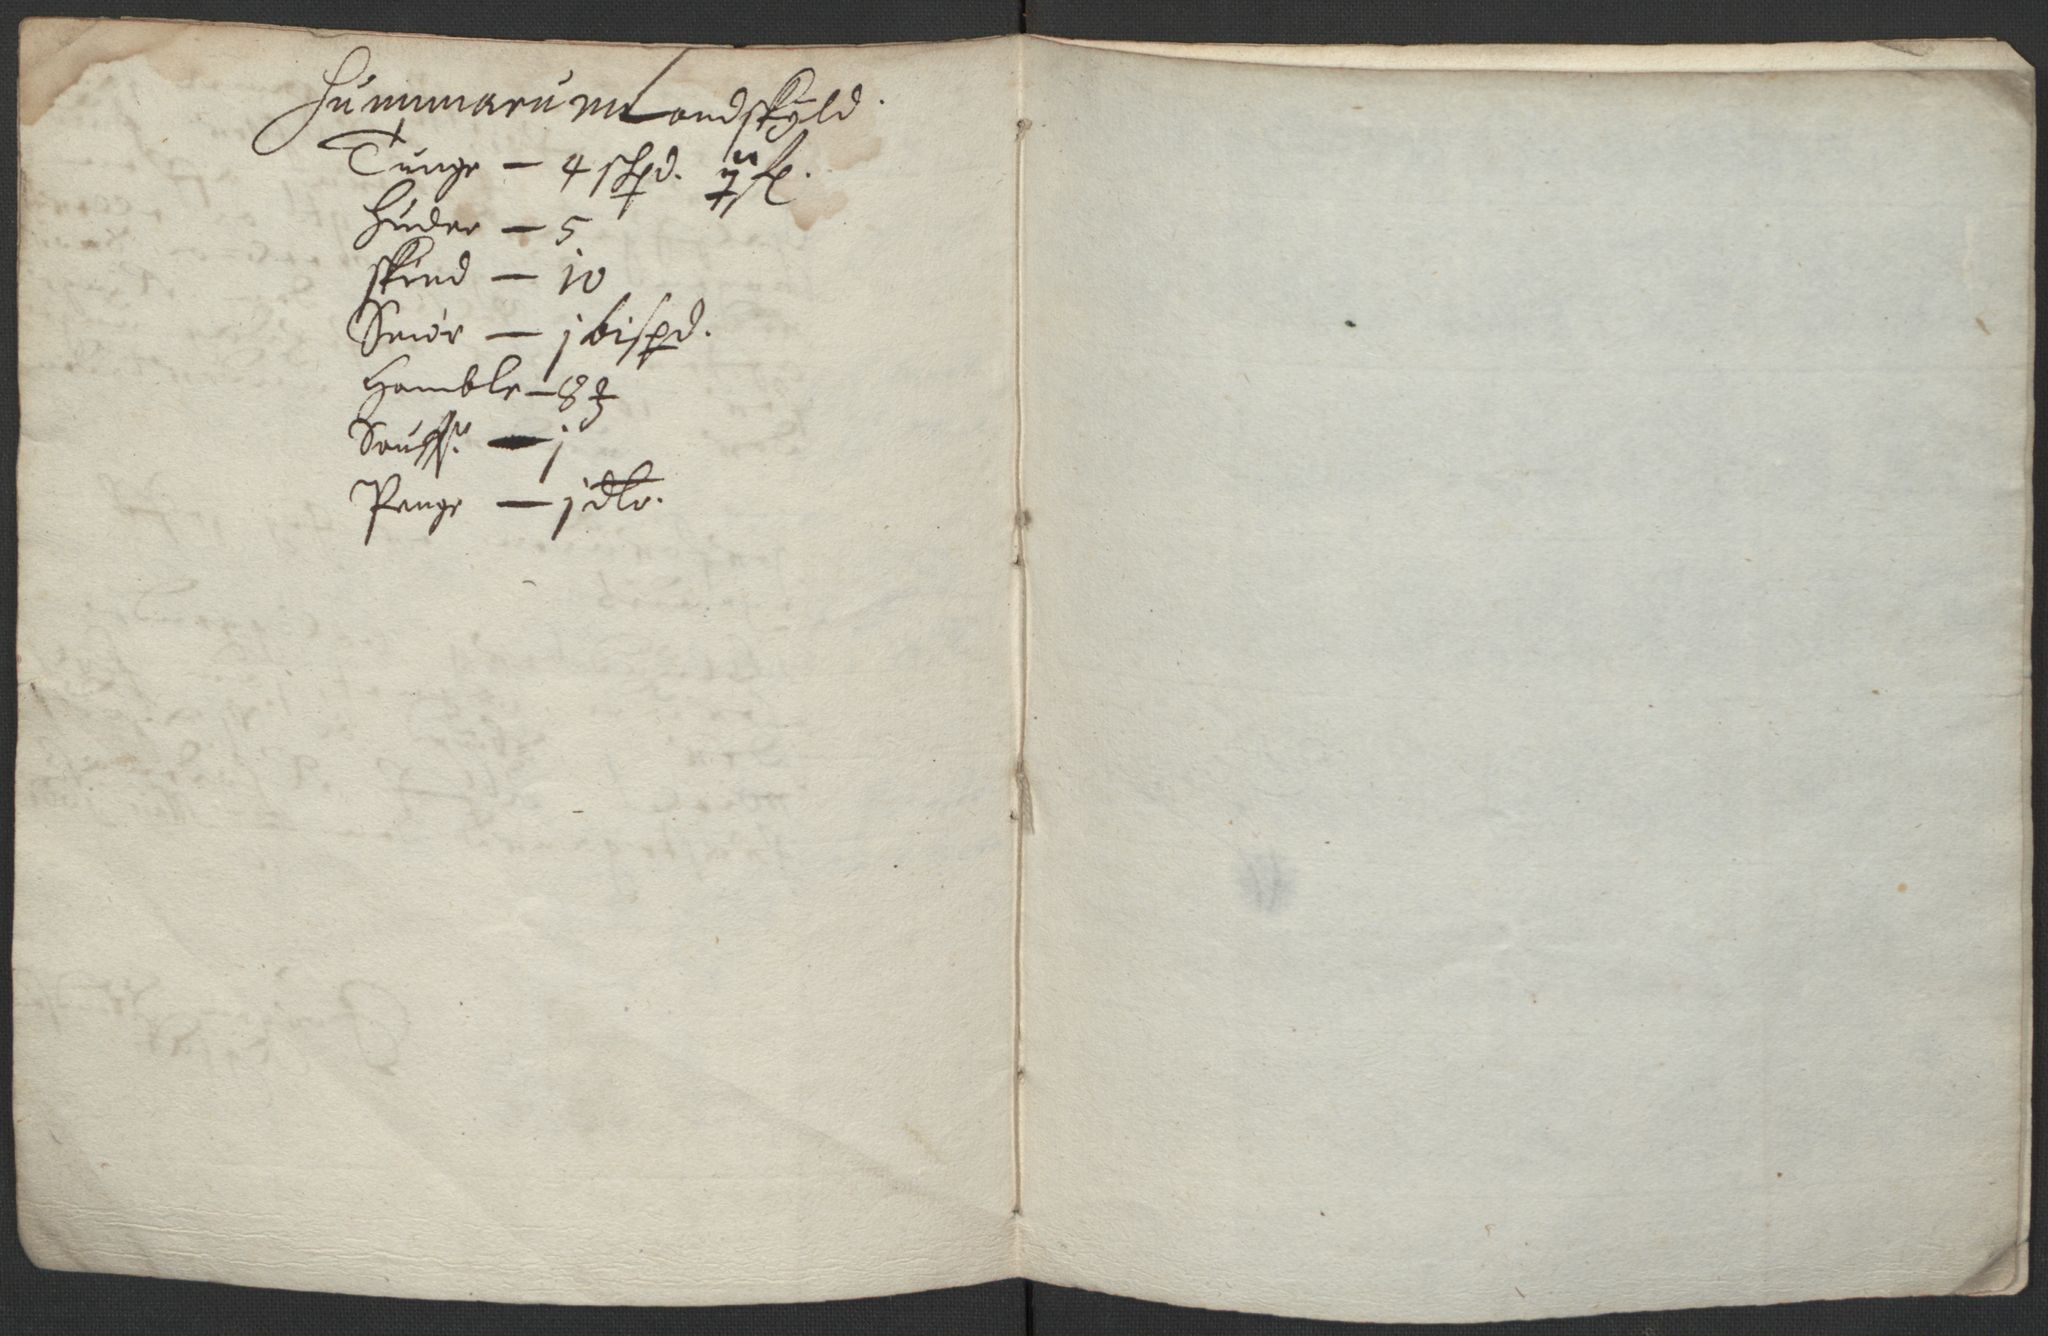 Summarum Landskÿld.
Tunge – 4 skpd.
Huder – 5
skind – 10
Smör – j bispd.
Homble – 8
Sauff
Penge – j dlr.